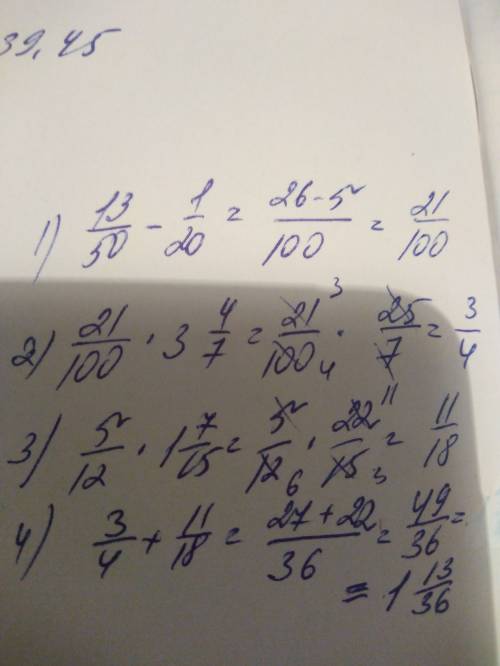 39,45
1) 13/50 - 1/20 = 26-5/100 = 21/100
2) 21/100 · 3 4/7 = 21 3/100 4 · 25/7 = 3/4
3) 5/12 · 1 7/15 = 5/12 6 · 22 11/15 3 = 11/18
4) 3/4 + 11/18 = 27+22/36 = 49/36 =
= 1 13/36